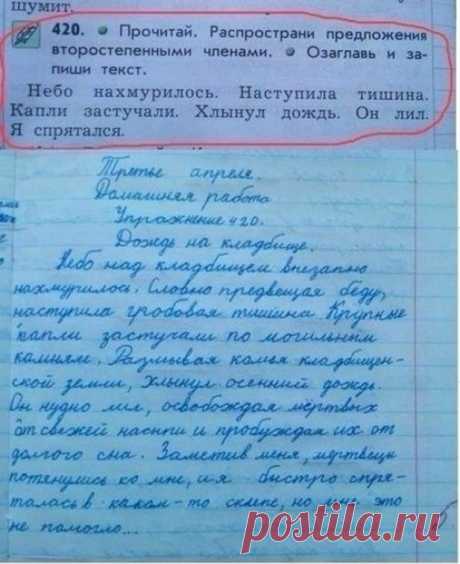 шумит,
420. • Прочитай. Распространи предложения
второстепенными членами. • Озаглавь и за-
пиши текст.
Небо нахмурилось. Наступила тишина.
Капли застучали. Хлынул дождь. Он лил.
Я спрятался.
Третье апреля.
Домашняя работа
Упражнение 420.
Дождь на кладбище.
Небо над кладбищем внезапно
нахмурилось. Словно предвещая беду,
наступила гробовая тишина. Крупные
капли застучали по могильным
камням. Размывая комья кладбищен-
ской земли, хлынул осенний дождь.
Он нудно лил, освобождая мёртвых
от свежей насыпи и пробуждая их от
долгого сна. Заметив меня, мертвецы
потянулись ко мне, и я быстро спря-
талась в каком-то склепе, но мне это
не помогло...
postila.ru